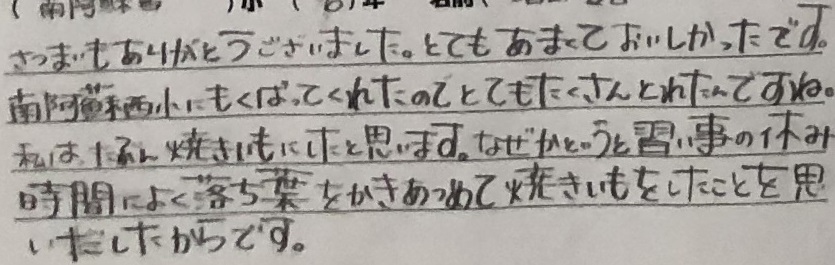 (南阿蘇西)小(6)年 名前(
さつまいもありがとうございました。とてもあまくておいしかったです。
南阿蘇西小にもくばってくれたのでとてもたくさんとれたんですね。
私はたぶん焼きいもにしたと思います。なぜかというと習い事の休み
時間によく落ち葉をかきあつめて焼きいもをしたことを思
いだしたからです。